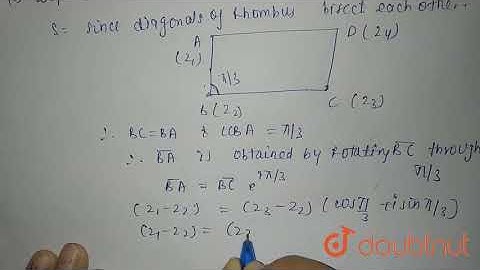 S= since diagonals of Rhombus bisect each other.
A
(z1)
D (z4)
π/3
B (z2)
C (z3)
∴ BC = BA & ∠CBA = π/3
∴ BA is obtained by rotating BC through
π/3
BA = BC e^iπ/3
(z1-z2) = (z3-z2) (cosπ/3 + i sin π/3)
(z1-z2) = (z3
doubtnut